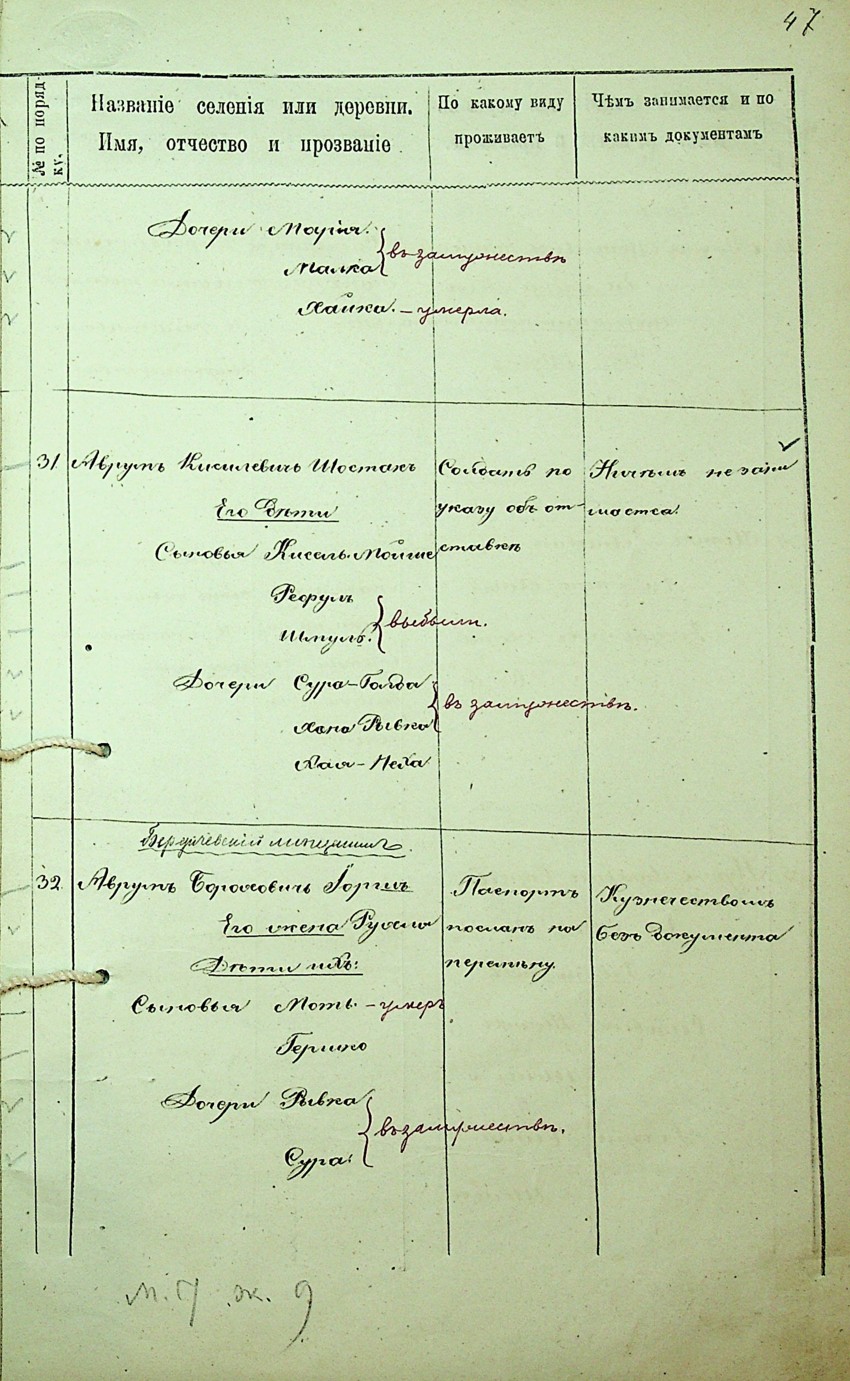 47
№ по поряд-
ку.
Названіе селенія или деревни.
Имя, отчество и прозваніе
По какому виду
проживаетъ
Чѣмъ занимается и по
какимъ документамъ
Дочери
Малка
въ замужествѣ
Хайка. – умерла.
31 Аврумъ Кисилевичъ Шостакъ
Его Дѣти
Сыновья Кисель-Мойше
Рефулъ
Шмуль.
выбыли.
Дочери Сура-Голда
Хана Рывка
въ замужествѣ.
Хая-Неха
Солдатъ по
указу объ от-
ставкѣ
Ничѣмъ не зани
мается.
Бердичевскій мѣщанинъ.
32 Аврумъ Борохович
Его жена Рухля
Дѣти ихъ:
Сыновья Моть. – умеръ
Гершко
Дочери Рывка
Сура.
въ замужествѣ.
Паспортъ
посланъ на
перемѣну.
Кузнечествомъ
безъ документа
м. 7 ж. 9